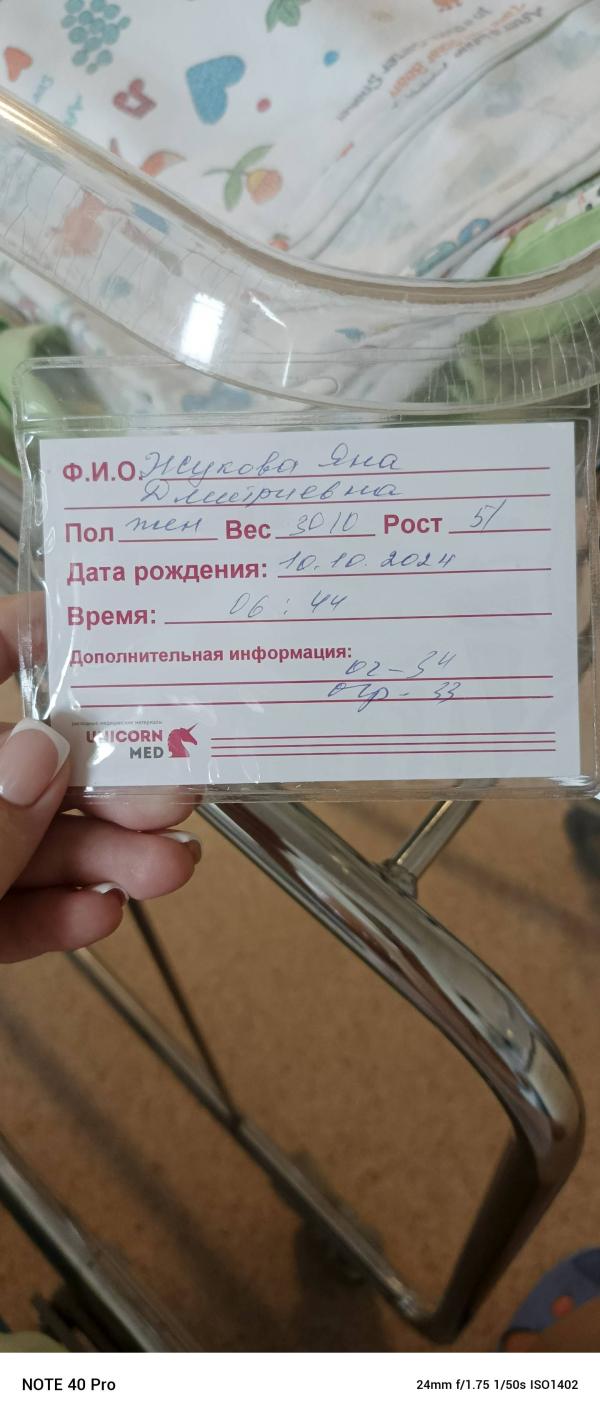 Ф.И.О. Жукова Яна
Дмитриевна
Пол жен Вес 3010 Рост 51
Дата рождения: 10.10.2024
Время: 06 : 44
Дополнительная информация:
ог – 34
огр - 33
расходные медицинские материалы
UNICORN
MED
NOTE 40 Pro
24mm f/1.75 1/50s ISO1402